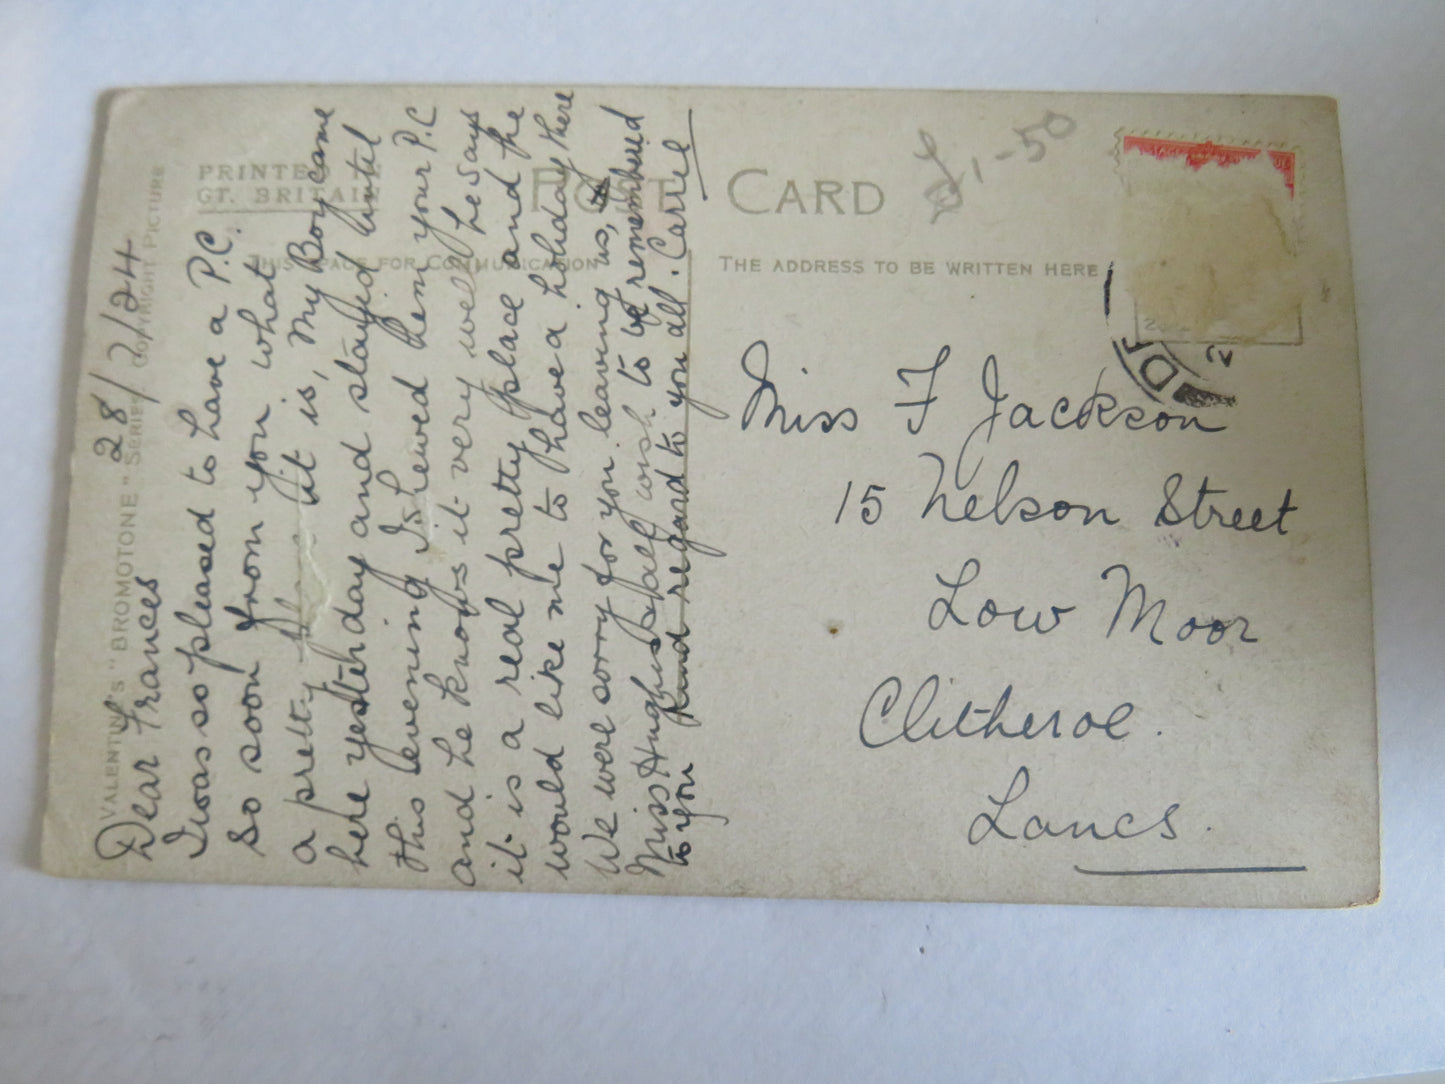 VALENTINE'S "BROMOTONE" SERIES COPYRIGHT PICTURE
PRINTED
GT. BRITAIN
POST CARD
THIS SPACE FOR COMMUNICATION
THE ADDRESS TO BE WRITTEN HERE
£1-50
28/7/24
Dear Frances
I was so pleased to have a P.C.
so soon from you what
a pretty place it is, My Boy came
here yesterday and stayed until
this evening I shewed hem your P.C
and he knows it very well he says
it is a real pretty place and the
would like me to have a holiday there
We were sorry for you leaving us,
Miss Hughes all wish to be remembered
to you kind regard to you all. Carrie
Miss F Jackson
15 Nelson Street
Low Moor
Clitheroe.
Lancs.